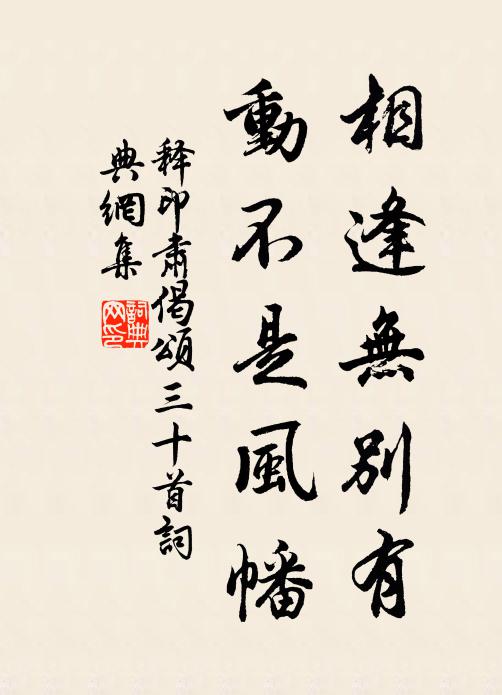 相逢無別有
動不是風幡
释印肅偈頌三十首詞
典網集
詞典
网印